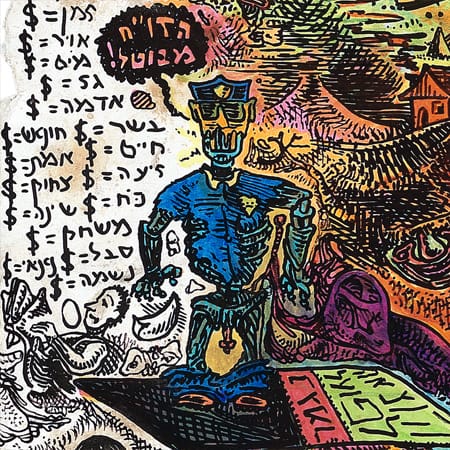 הדו״ח
מבוטל!
זמן = $
אויר = $
מים = $
גז = $
אדמה = $
בשר = $
חיים = $
זיעה = $
כח = $
משחק = $
סבל = $
נשמה = $
חופש = $
אמת = $
צחוק = $
שינה = $